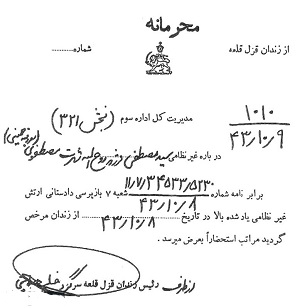 محرمانه
از زندان قزل قلعه
شماره
۱۰۱۰
۴۳/۱۰/۹
مدیریت کل اداره سوم (بخش ۳۲۱)
در باره غیر نظامی سید مصطفی فرزند روح اله شهرت مصطفوی (خمینی)
برابر نامه شماره ۱۱/۷/۳۴۵۳۳/۵۲۳۰ شعبه ۷ بازپرسی دادستانی ارتش
۴۳/۱۰/۸
غیر نظامی یاد شده بالا در تاریخ ۴۳/۱۰/۸ از زندان مرخص
گردید مراتب استحضاراً بعرض میرسد.
از طرف رئیس زندان قزل قلعه سرگرد